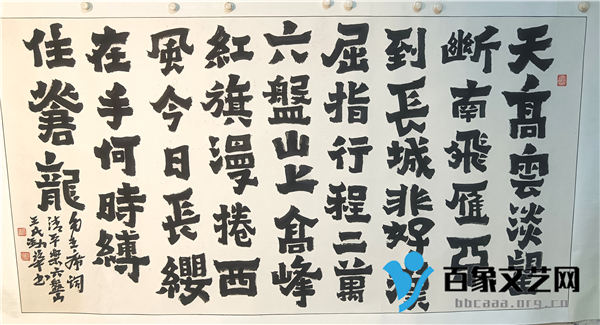 天高雲淡望
断南飛雁不
到長城非好漢
屈指行程二萬
六盤山上高峰
紅旗漫捲西
風今日長纓
在手何時縛
住蒼龍
毛主席词
清平樂六盤山
百象文艺网
bbcaaa.org.cn